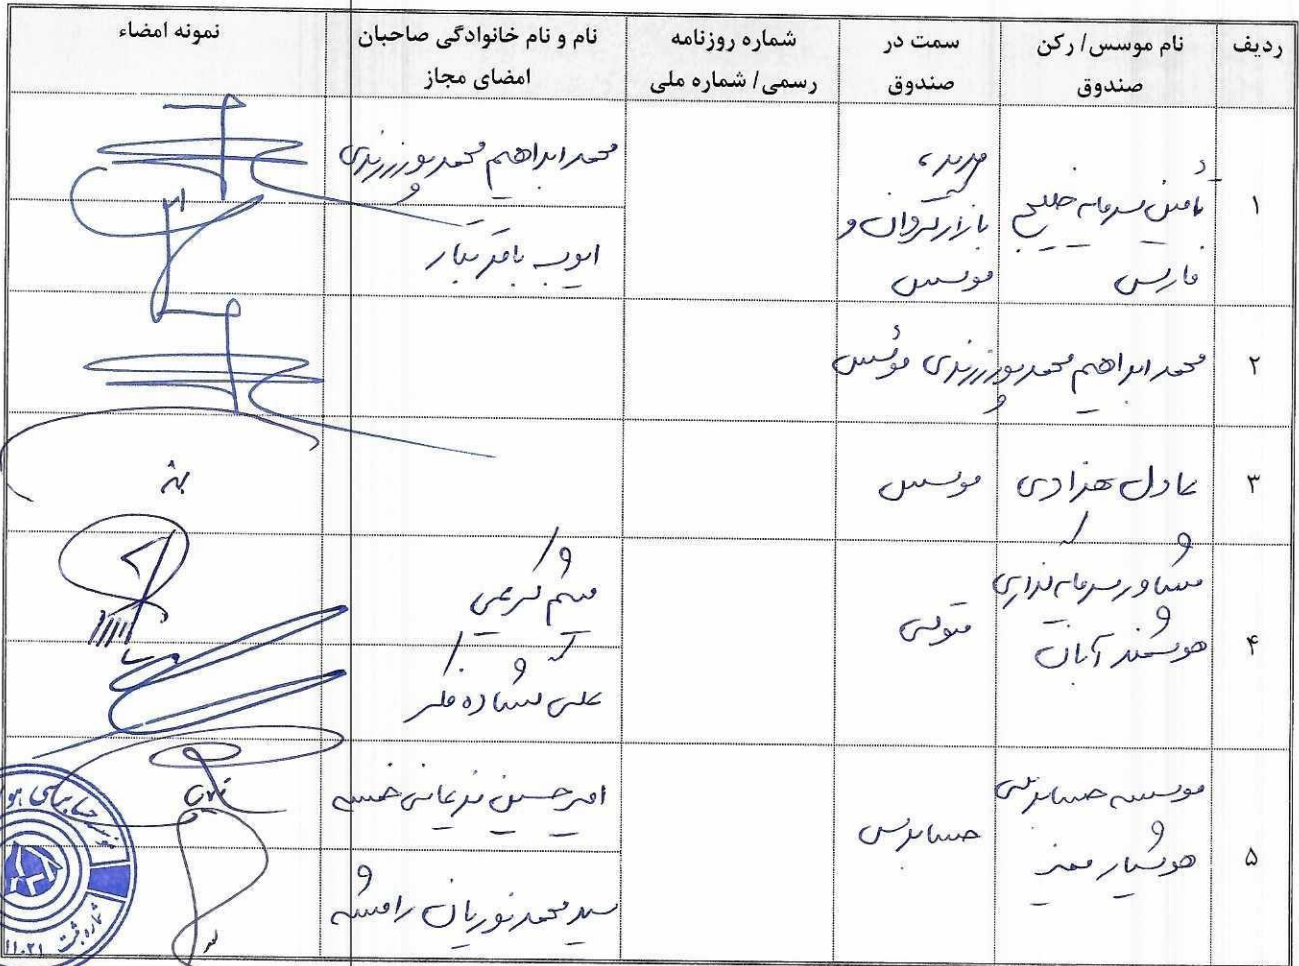 ردیف
نام موسس/ رکن صندوق
سمت در صندوق
شماره روزنامه رسمی/ شماره ملی
نام و نام خانوادگی صاحبان امضای مجاز
نمونه امضاء
۱
تأمین سرمایه خلیج
فارس
مدیر،
بازارگردان و
موسس
محمد ابراهیم محمدپورزرندی
ایوب باقرتبار
۲
محمد ابراهیم محمدپورزرندی
مؤسس
۳
عادل بهزادی
موسس
۴
مشاور سرمایه گذاری
هوشمند آبان
متولی
میثم کریمی
علی
۵
موسسه حسابرسی
هوشیار ممیز
حسابرس
امیرحسین نریمانی خمسه
سید محمد نوریان رامشه
شماره ثبت ۱۱۰۲۱